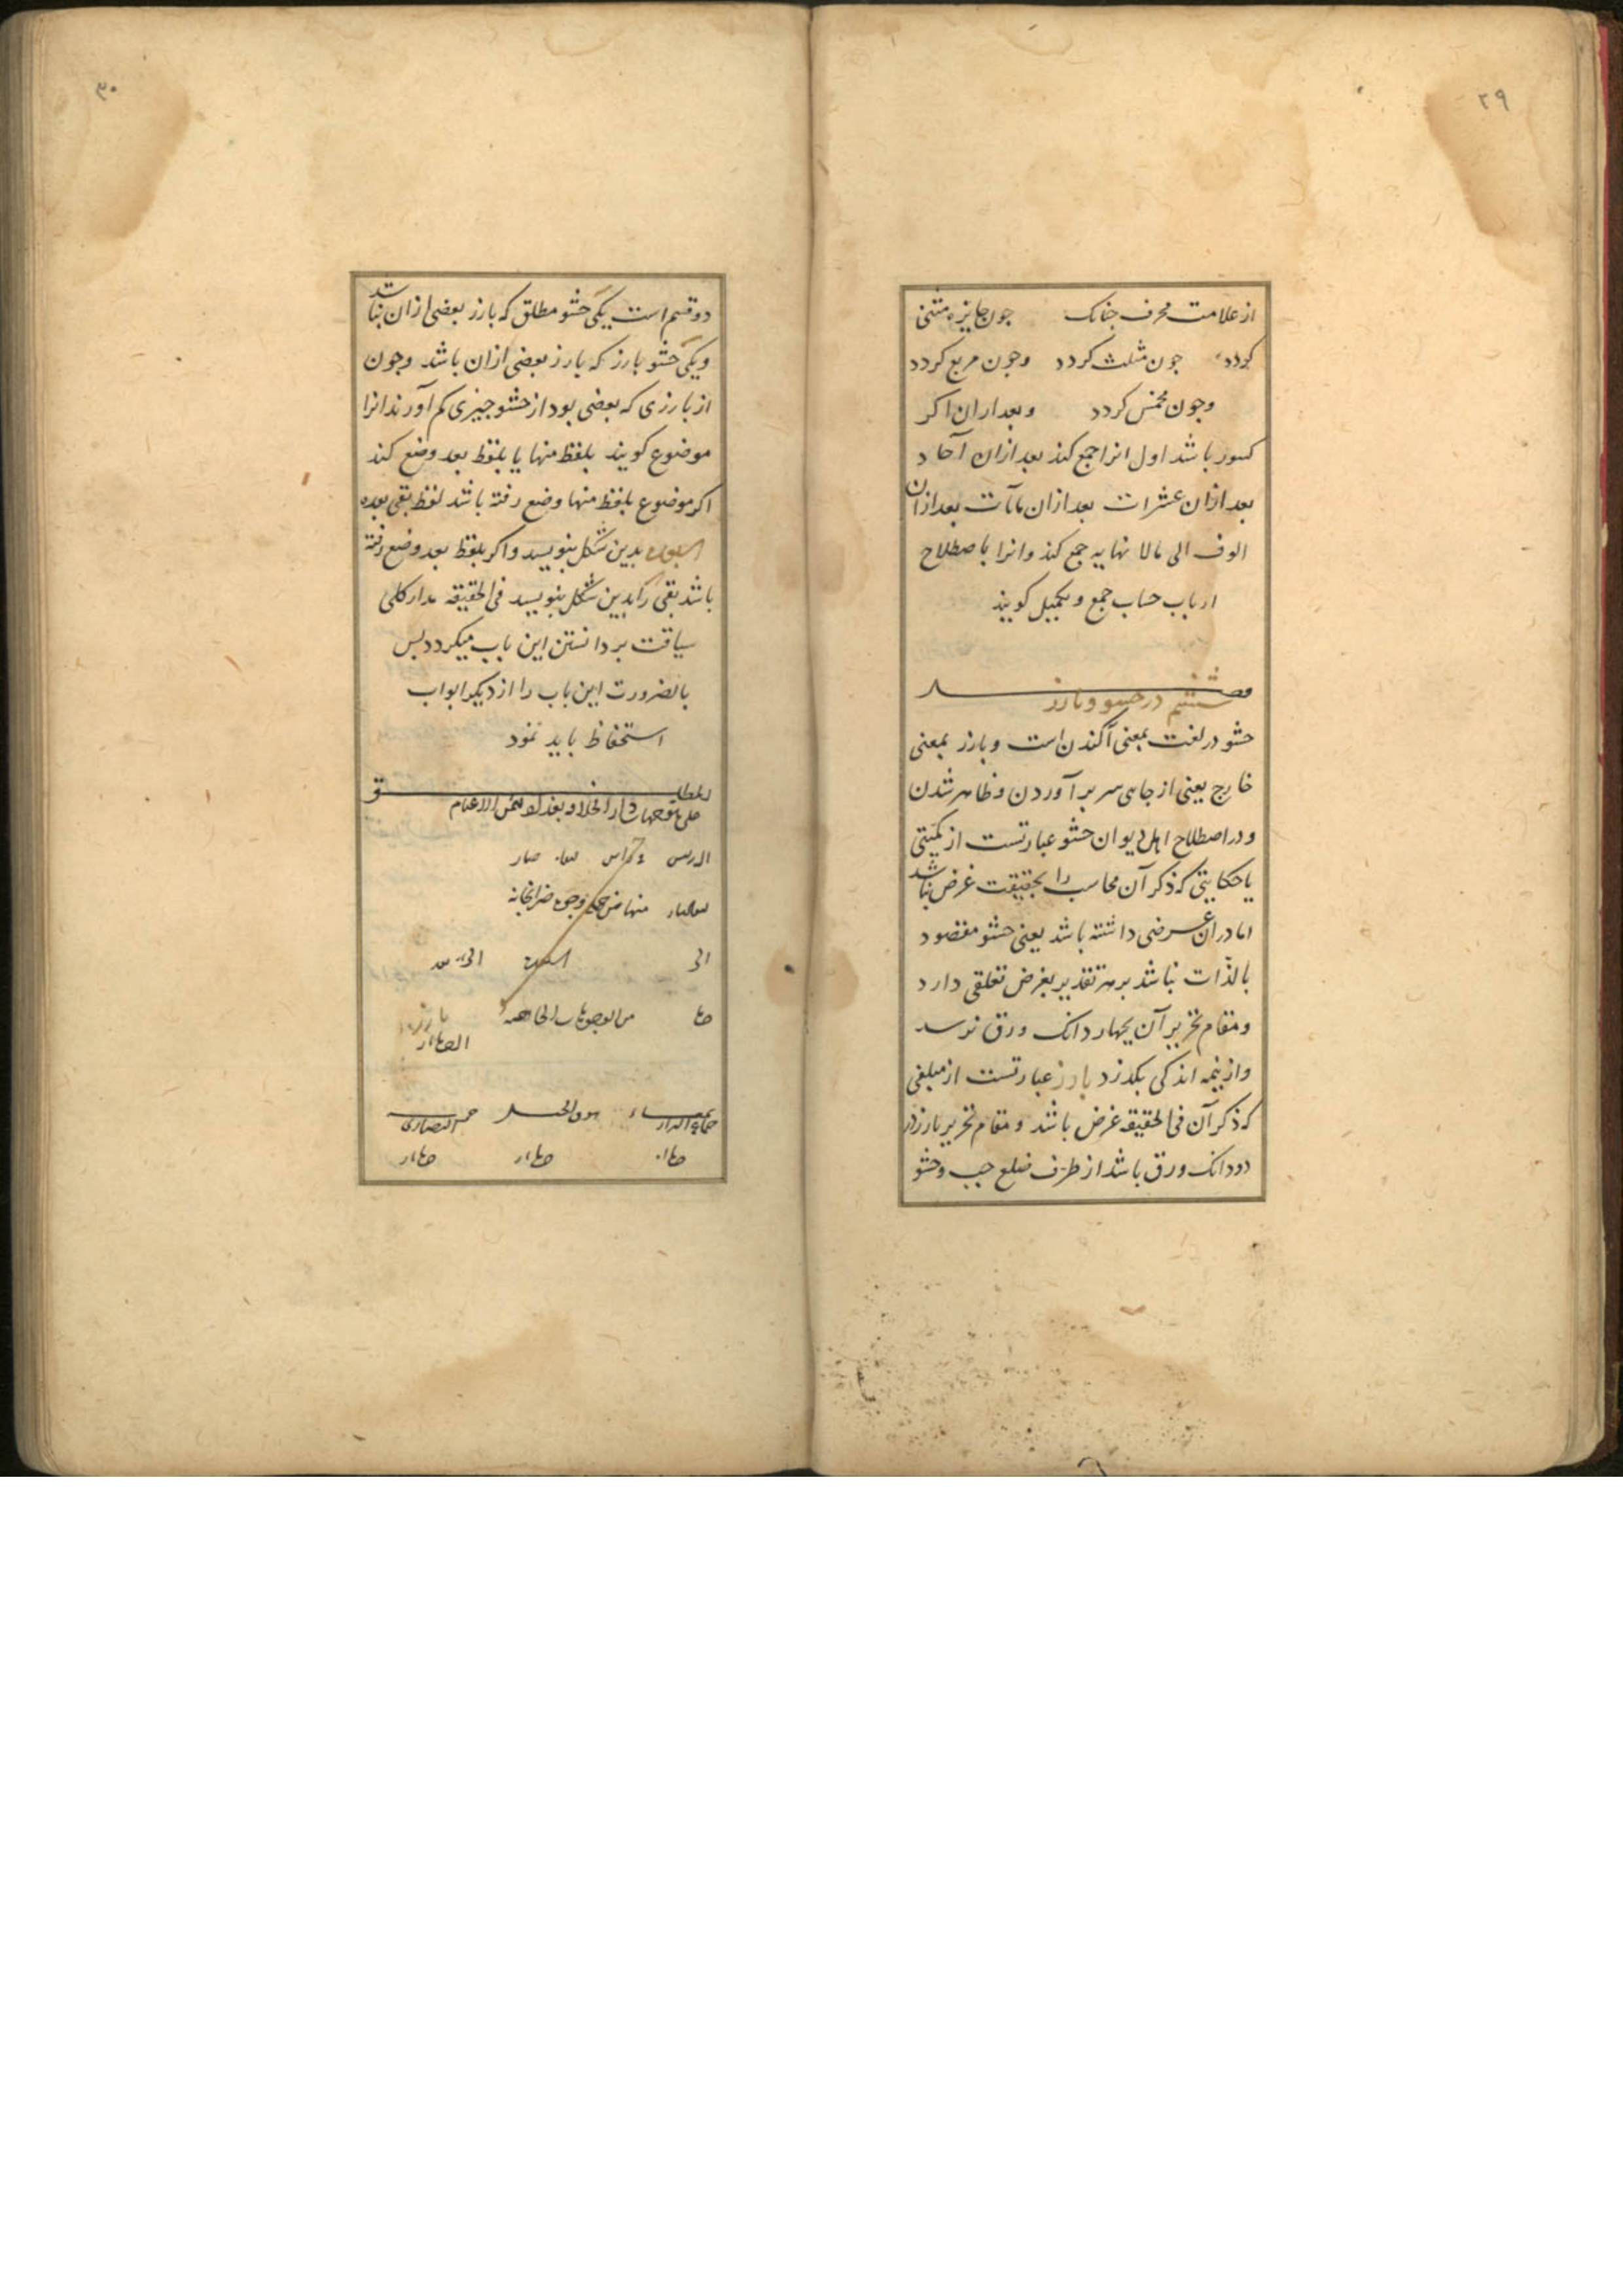 ۲۹
از علامت محرف جنانک جون جایزه مثنی
کردد جون مثلث کردد وجون مربع کردد
وجون مخمس کردد وبعد ازان اکر
کسور باشد اول انرا جمع کند بعد ازان آحاد
بعد ازان عشرات بعد ازان مآت بعد ازان
الوف الی مالا نهایه جمع کند وانرا باصطلاح
ارباب حساب جمع و تکمیل کویند
فصل
ششم در حشو و بارز
حشو در لغت بمعنی آکندن است و بارز بمعنی
خارج یعنی از جایی سر بر آوردن و ظاهر شدن
و در اصطلاح اهل دیوان حشو عبارتست از کمیتی
یا حکایتی که ذکر آن محاسب را بحقیقت غرض نباشد
اما در ان غرضی داشته باشد یعنی حشو مقصود
بالذات نباشد بهر تقدیر بغرض تعلقی دارد
و مقام تحریر آن بچهار دانک ورق نرسد
واز نیمه اندکی بکذرد بارز عبارتست از مبلغی
که ذکر آن فی الحقیقه غرض باشد و مقام تحریر بارز در
دودانک ورق باشد از طرف ضلع جب وحشو
۳۰
دو قسم است یکی حشو مطلق که بارز بعضی ازان نباشد
ویکی حشو بارز که بارز بعضی ازان باشد وجون
از بارزی که بعضی بود از حشو جیزی کم آورند انرا
موضوع کویند بلفظ منها یا بلفظ بعد وضع کند
اکر موضوع بلفظ منها وضع رفته باشد لفظ بقی بعده
بدین شکل بنویسد واکر بلفظ بعد وضع رفته
باشد بقی را بدین شکل بنویسد فی الحقیقه مدار کلی
سیاقت بر دانستن این باب میکردد بس
بالضرورت این باب را از دیکر ابواب
استحفاظ باید نمود
المطلق
علی متوجهات دار الخلافه بغداد
منها من وجوه ضرابخانه
الی
بارز